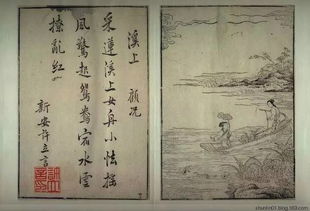 溪上　顧况
采蓮溪上女舟小怯搖
風驚起鴛鴦宿水雲
撩亂紅
新安許立言